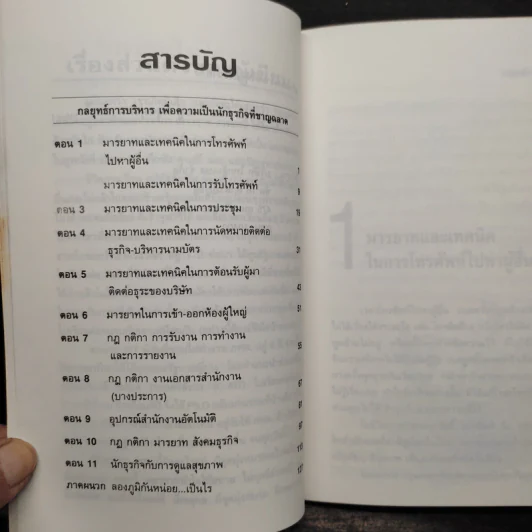 สารบัญ
กลยุทธ์การบริหาร เพื่อความเป็นนักธุรกิจที่ชาญฉลาด
ตอน 1 มารยาทและเทคนิคในการโทรศัพท์
ไปหาผู้อื่น 1
มารยาทและเทคนิคในการรับโทรศัพท์
ตอน 3 มารยาทและเทคนิคในการประชุม
ตอน 4 มารยาทและเทคนิคในการนัดหมายติดต่อ
ธุรกิจ-บริหารนามบัตร
ตอน 5 มารยาทและเทคนิคในการต้อนรับผู้มา
ติดต่อธุระของบริษัท
ตอน 6 มารยาทในการเข้า-ออกห้องผู้ใหญ่
ตอน 7 กฎ กติกา การรับงาน การทำงาน
และการรายงาน
ตอน 8 กฎ กติกา งานเอกสารสำนักงาน
(บางประการ)
ตอน 9 อุปกรณ์สำนักงานอัตโนมัติ
ตอน 10 กฎ กติกา มารยาท สังคมธุรกิจ
ตอน 11 นักธุรกิจกับการดูแลสุขภาพ
ภาคผนวก ลองภูมิกันหน่อย...เป็นไร
1
มารยาทและเทคนิค
ในการโทรศัพท์ไปหาผู้อื่น